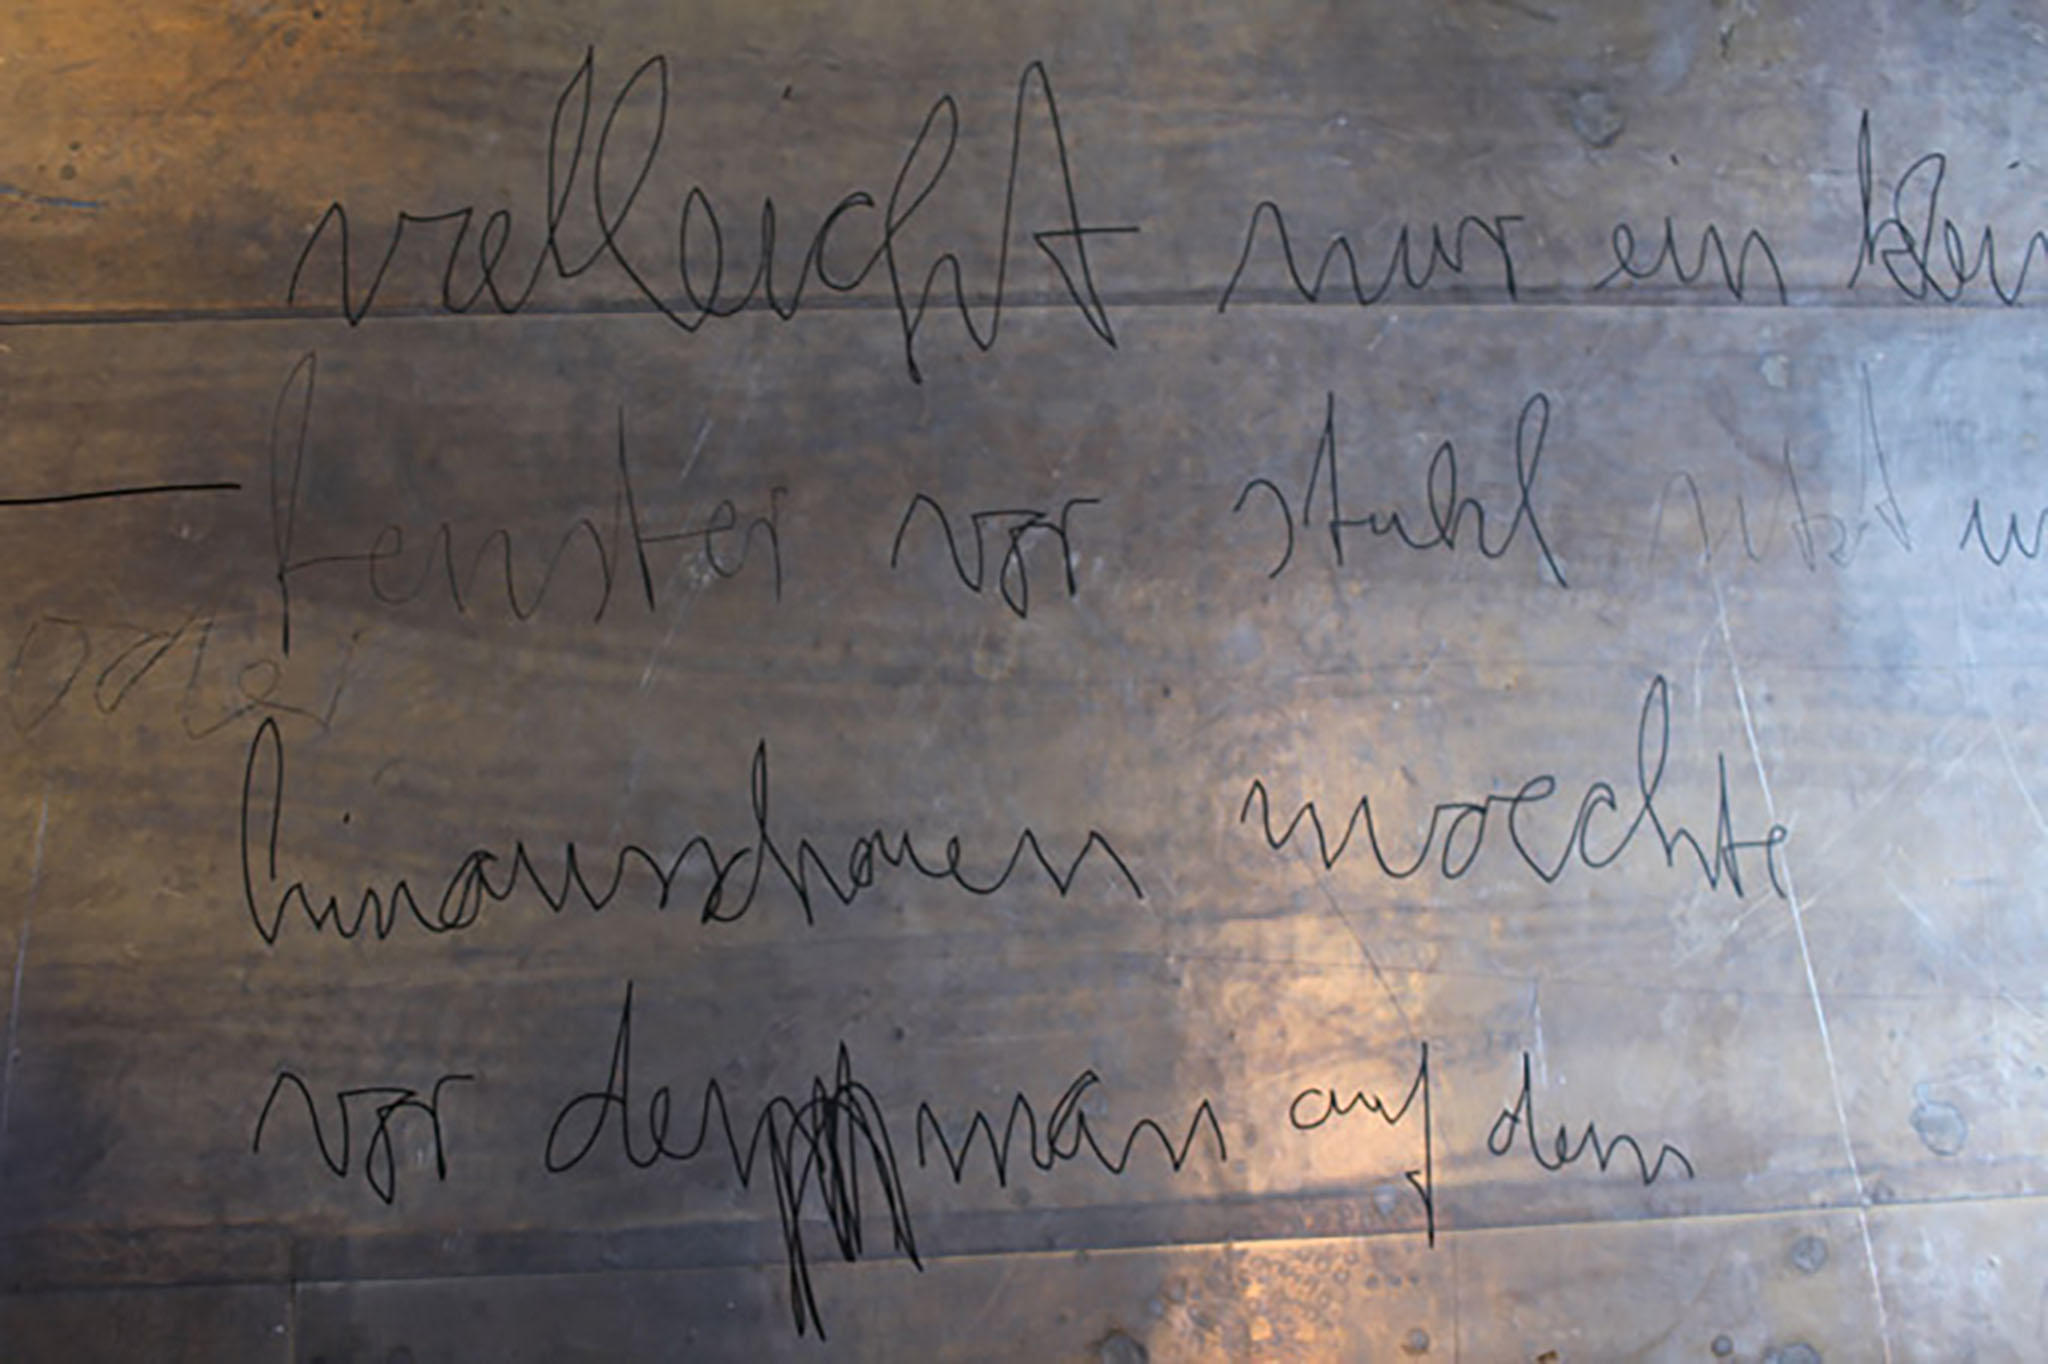 vielleicht nur ein klein
fenster vor stuhl sitzt un
oder
hinausschauen moechte
vor dem man auf dem